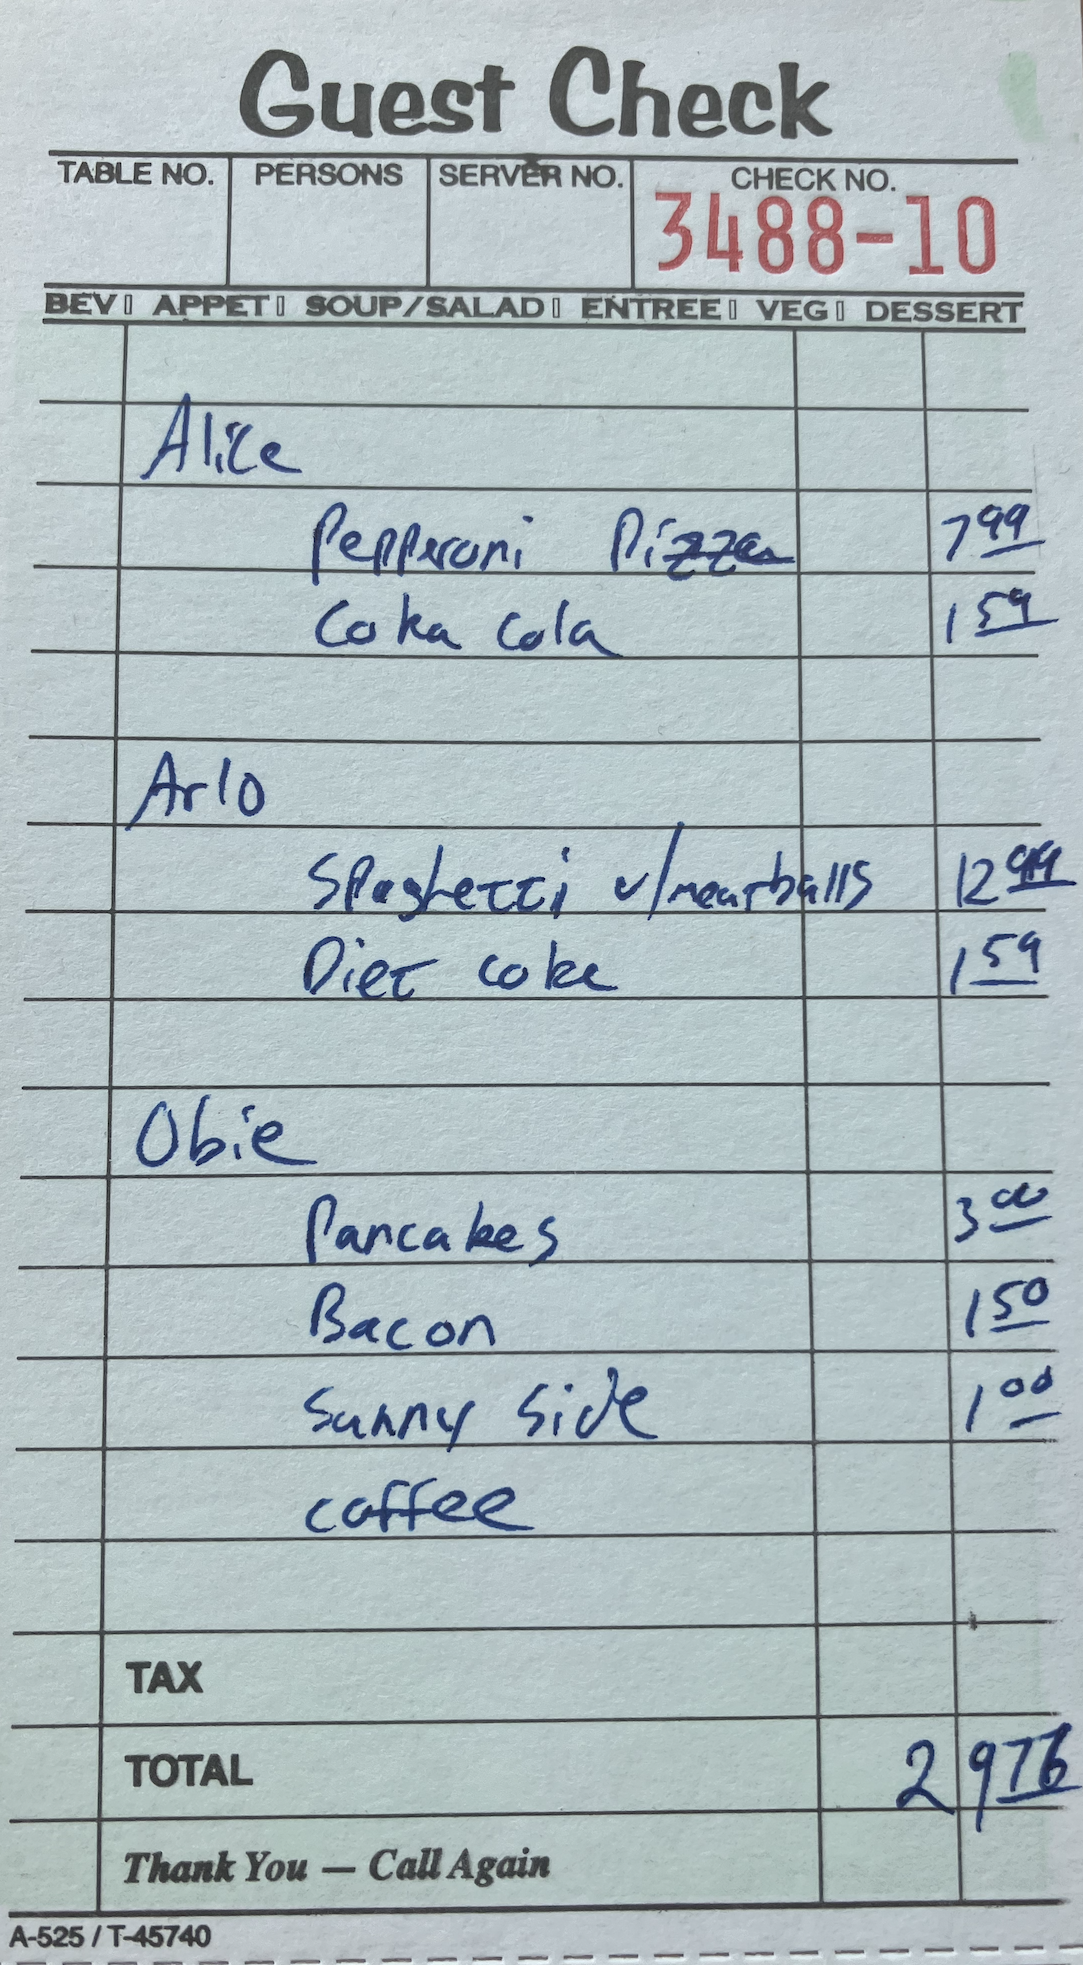 Guest Check
TABLE NO. PERSONS SERVER NO. CHECK NO.
3488-10
BEV▯ APPET▯ SOUP/SALAD▯ ENTREE▯ VEG▯ DESSERT
Alice
Pepperoni Pizza 7 99
Coka Cola 1 59
Arlo
Spaghetti w/meatballs 12 99
Diet coke 1 59
Obie
Pancakes 3 00
Bacon 1 50
Sunny side 1 00
coffee
TAX
TOTAL 29 76
Thank You — Call Again
A-525 / T-45740